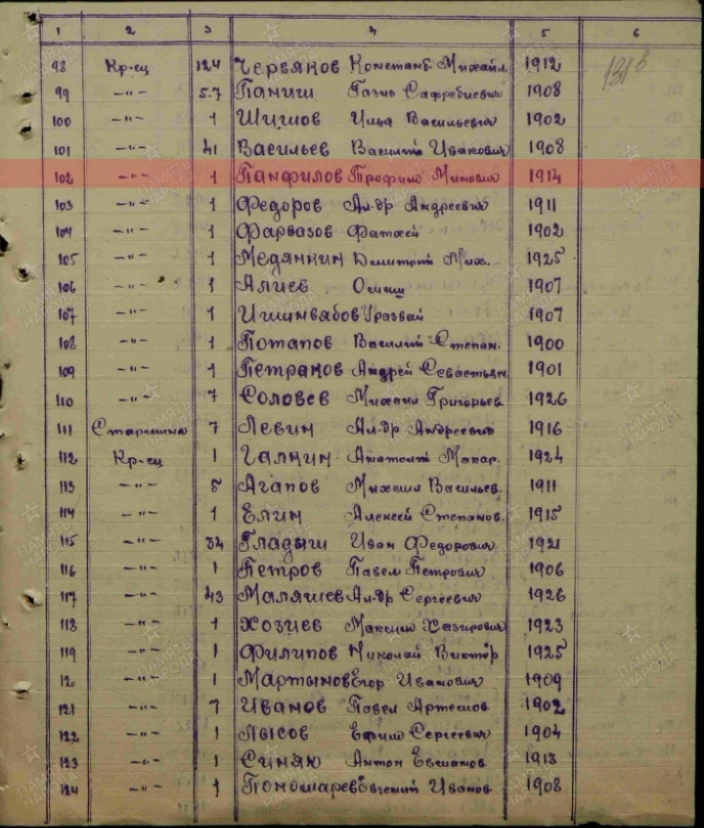 1 2 3 4 5 6
98 Кр-ец 124 Червяков Констант. Михайл 1912 131
99 —"— 5.7 Паниш 1908
100 —"— 1 Шишов Илья Васильевич 1902
101 —"— 41 Васильев Василий Иванович 1908
102 —"— 1 Панфилов Трофим Минович 1914
103 —"— 1 Федоров Ал-др Андреевич 1911
104 —"— 1 Фарвазов Фатхей 1902
105 —"— 1 Медянкин Дмитрий Мих. 1925
106 —"— 1 Алиев 1907
107 —"— 1 Уразвай 1907
108 —"— 1 Потапов Василий Степан. 1900
109 —"— 1 Петраков Андрей Севастьян. 1901
110 —"— 7 Соловев Михаил Григорьев 1926
111 Старшина 7 Левин Ал-др Андреевич 1916
112 Кр-ец 1 Галкин Анатолий Макар. 1924
113 —"— 5 Агапов Михаил Васильев. 1911
114 —"— 1 Елин Алексей Степанов. 1915
115 —"— 34 Гладыш Иван Федорович 1921
116 —"— 1 Петров Павел Петрович 1906
117 —"— 43 Маляшев Ал-др Сергеевич 1926
118 —"— 1 Хозиев Максим Хазирович 1923
119 —"— 1 Филипов Николай Виктор 1925
12. —"— 1 Мартынов Егор Иванович 1909
121 —"— 7 Иванов Павел Артемов 1902
122 —"— 1 Лысов Ефим Сергеевич 1904
123 —"— 1 Синяк Антон 1913
124 —"— 1 Поношарев Евгений Иванов 1908